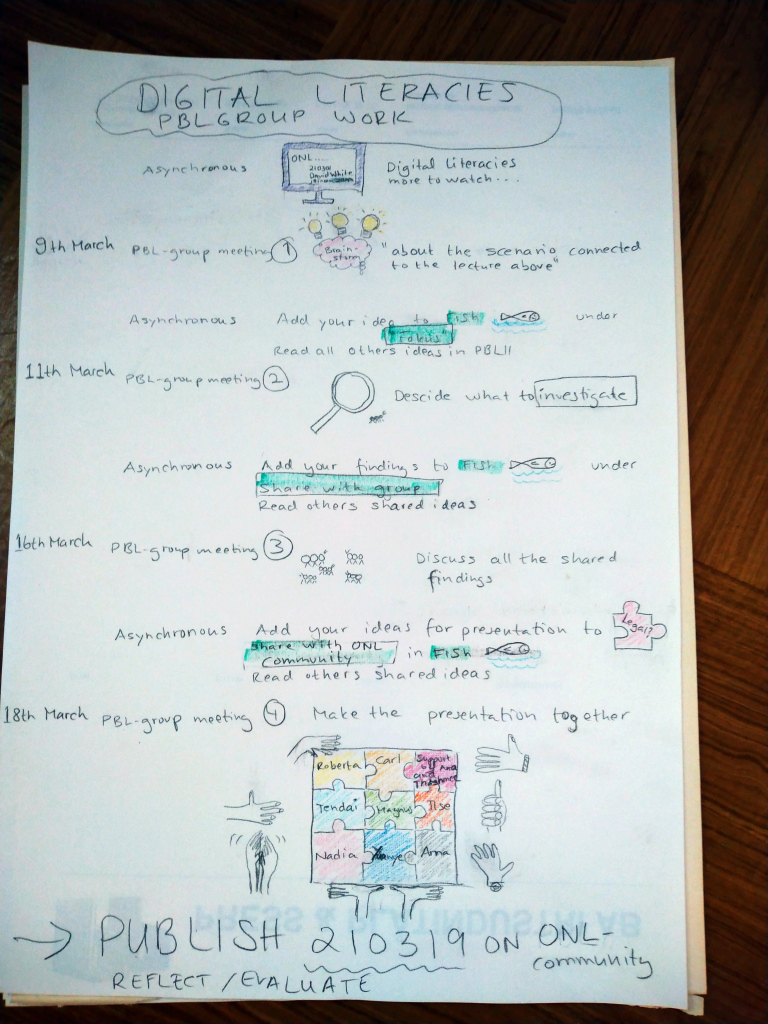 DIGITAL LITERACIES
PBLGROUP WORK
Asynchronous
ONL....
210301
David White
Digital literacies
more to watch....
9th March PBL-group meeting 1
Brain-
storm
"about the scenario connected
to the lecture above"
Asynchronous Add your idea to Fish under
"Fokus"
Read all others ideas in PBL11
11th March PBL-group meeting 2 Descide what to investigate
Asynchronous Add your findings to Fish under
Share with group
Read others shared ideas
16th March PBL-group meeting 3 Discuss all the shared
findings
Asynchronous Add your ideas for presentation to
Legal?
Share with ONL
Community in FISH
Read others shared ideas
18th March PBL-group meeting 4 Make the presentation together
Roberta Carl Support
by Ana
and
Tendai Magnus Ilse
Nadia Anna
→ PUBLISH 210319 ON ONL-
community
REFLECT/EVALUATE
PRESS & PLÅTINDUSTRI AB